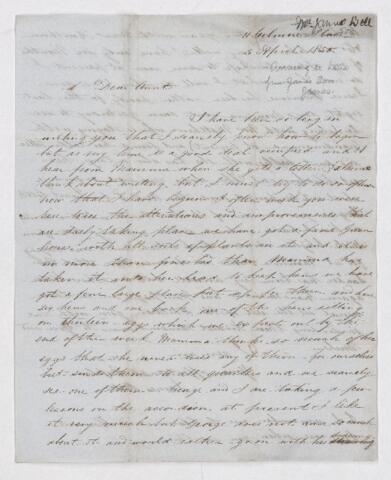 Mrs James Dell
11 Gilmore Place
5 April 1850
Dear Aunt
I have been so long in
writing you that I scarcely know how to begin
but as my time is a good deal occupied and I
hear from Mamma when she gets a letter I
think about writing, but I must try to do so often
now that I have begun. I often wish you were
here to see the alterations and improvements that
are daily taking place we have got a fine green
house with all sorts of plants in it and it is
no more than finished than Mamma has
taken it into her head to keep hens we have
got a fine large place for them and
six hens and one cock, one of the hens sitting
on thirteen eggs which are to be out by the
end of the week Mamma thinks so much of the
eggs that she never uses any of them for ourselves
but sends them to all quarters and we scarcely
see one of them. George and I are taking a few
lessons on the accordion at present I like
it very much but George does not care so much
about it and would rather go on with his